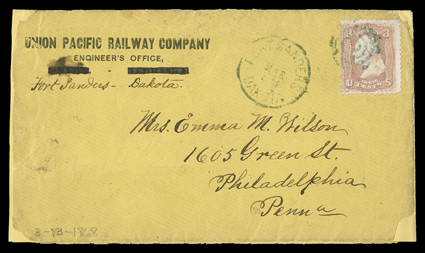 UNION PACIFIC RAILWAY COMPANY
ENGINEER'S OFFICE,
Fort Sanders - Dakota.
FORT SANDERS
DAK
3
Mrs. Emma M. Wilson
1605 Green St.
Philadelphia
Penna
3-13-1868